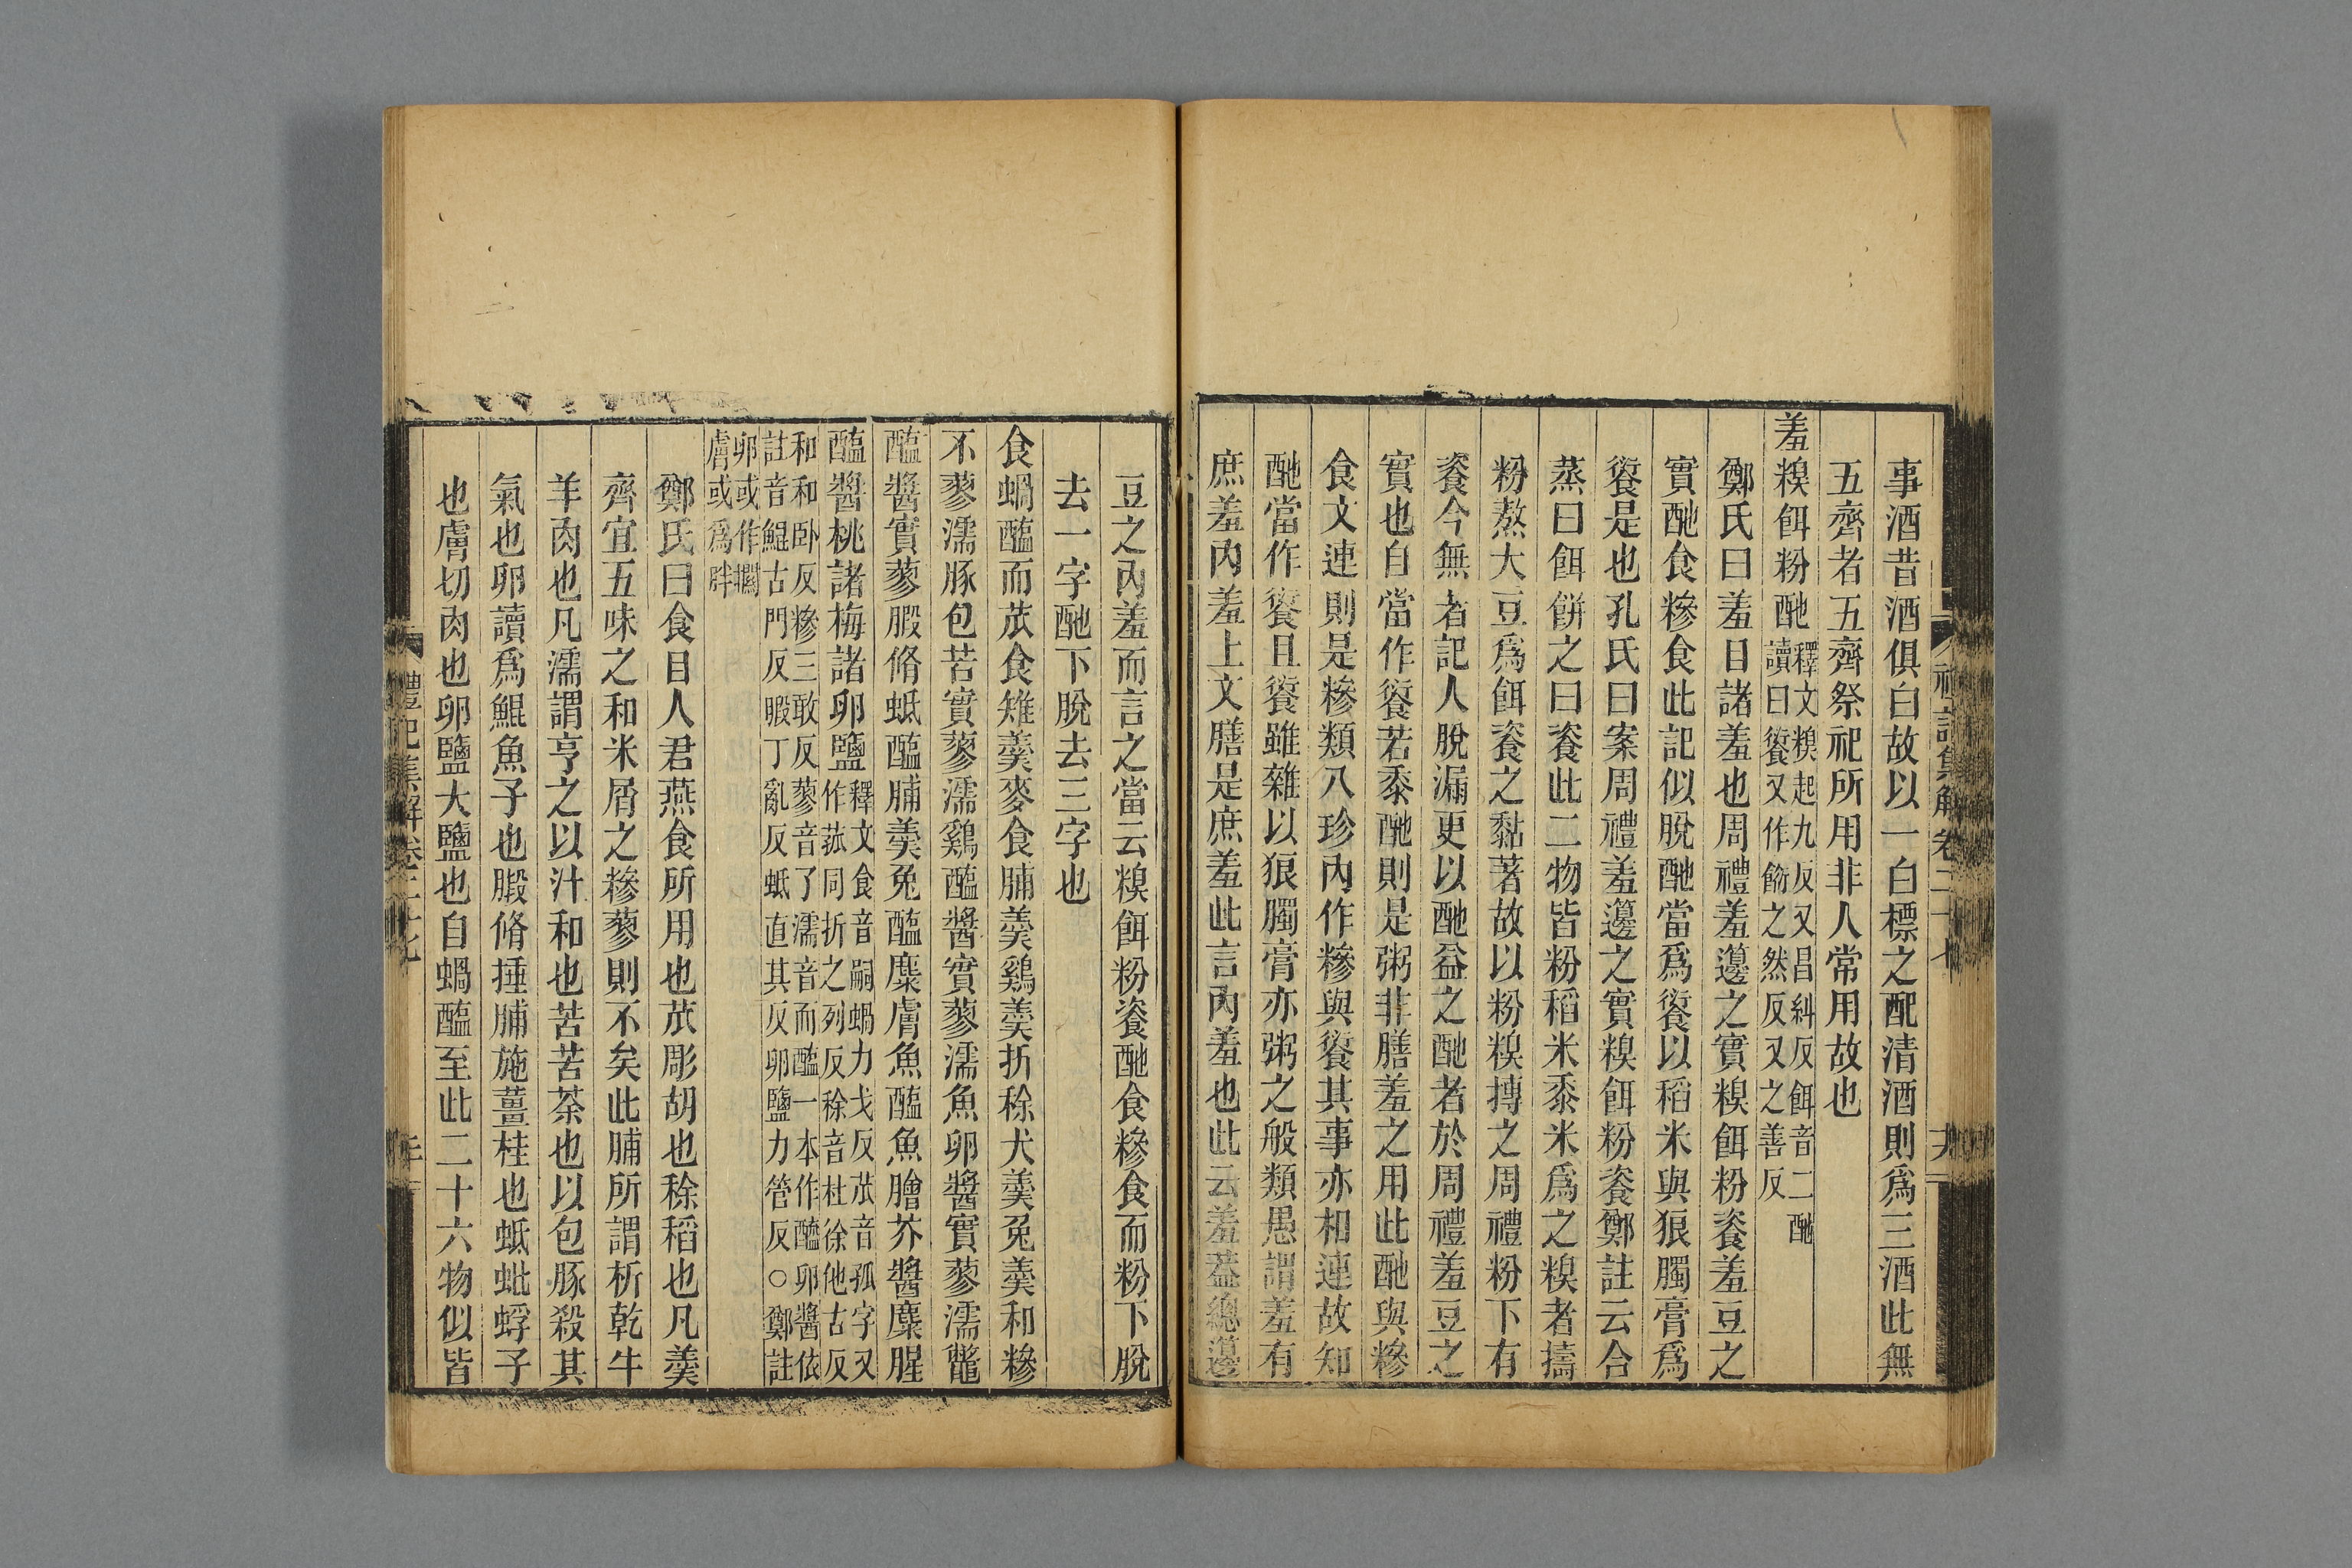 事酒昔酒俱白故以一白標之配清酒則爲三酒此無
五齊者五齊祭祀所用非人常用故也
羞糗餌粉酏釋文糗起九反又昌糾反餌音二酏
讀曰餰又作䬾之然反又之善反
鄭氏曰羞目諸羞也周禮羞籩之實糗餌粉餈羞豆之
實酏食糝食此記似脫酏當爲餰以稻米與狼臅膏爲
餰是也孔氏曰案周禮羞籩之實糗餌粉餈鄭註云合
蒸曰餌餅之曰餈此二物皆粉稻米黍米爲之糗者擣
粉熬大豆爲餌餈之黏著故以粉糗摶之周禮粉下有
餈今無者記人脫漏更以酏益之酏者於周禮羞豆之
實也自當作餰若黍酏則是粥非膳羞之用此酏與糝
食文連則是糝類八珍內作糝與餰其事亦相連故知
酏當作餰且餰雖雜以狼臅膏亦粥之般類愚謂羞有
庶羞內羞上文膳是庶羞此言內羞也此云羞葢總籩
禮記集解卷二十七
九
豆之內羞而言之當云糗餌粉餈酏食糝食而粉下脫
去一字酏下脫去三字也
食蝸醢而苽食雉羹麥食脯羹鷄羹折稌犬羹兔羹和糝
不蓼濡豚包苦實蓼濡鷄醢醬實蓼濡魚卵醬實蓼濡鼈
醢醬實蓼腶脩蚳醢脯羹兔醢麋膚魚醢魚膾芥醬麋腥
醢醬桃諸梅諸卵鹽釋文食音嗣蝸力戈反苽音孤字又
作菰同折之列反稌音杜徐他古反
和和卧反糝三敢反蓼音了濡音而醢一本作醯卵醬依
註音鯤古門反腶丁亂反蚳直其反卵鹽力管反○鄭註
卵或作攔
膚或爲胖
鄭氏曰食目人君燕食所用也苽彫胡也稌稻也凡羹
齊宜五味之和米屑之糝蓼則不矣此脯所謂析乾牛
羊肉也凡濡謂亨之以汁和也苦苦荼也以包豚殺其
氣也卵讀爲鯤魚子也腶脩捶脯施薑桂也蚳蚍蜉子
也膚切肉也卵鹽大鹽也自蝸醢至此二十六物似皆
禮記集解卷二十七